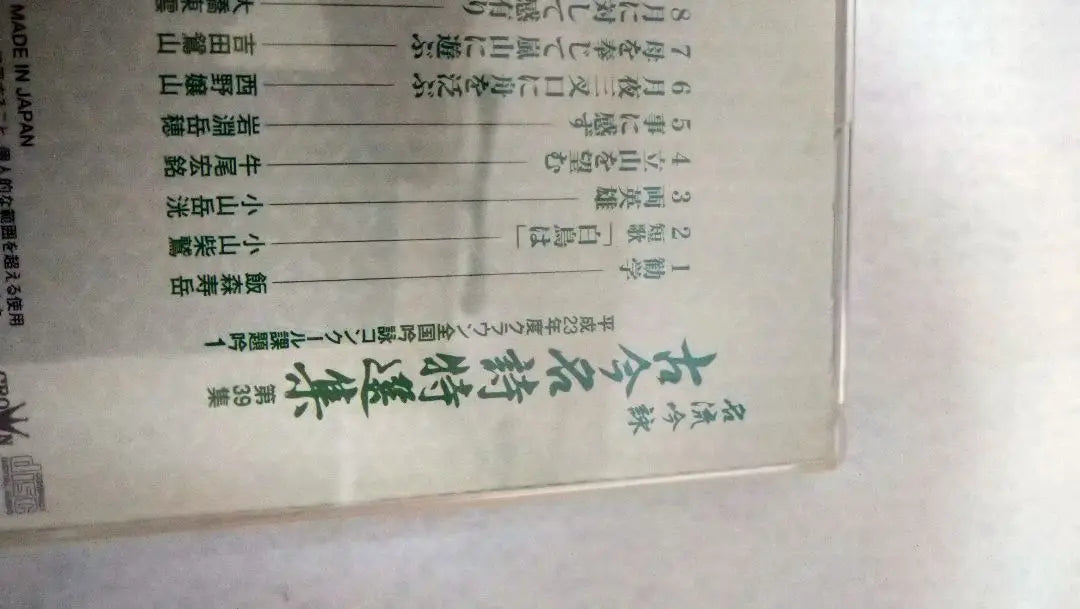 名流吟詠
古今名詩特選集
第39集
平成23年度クラウン全国吟詠コンクール課題吟1
1 勧学 飯森寿岳
2 短歌「白鳥は」 小山柴鷲
3 両英雄 小山岳洸
4 立山を望む 牛尾宏銘
5 事に感ず 岩淵岳穂
6 月夜三叉口に舟を泛ぶ 西野嬢山
7 母を奉じて嵐山に遊ぶ 吉田鴛山
8 月に対して感有り
MADE IN JAPAN
個人的な範囲を超える使用
CROWN
COMPACT
disc
DIGITAL AUDIO